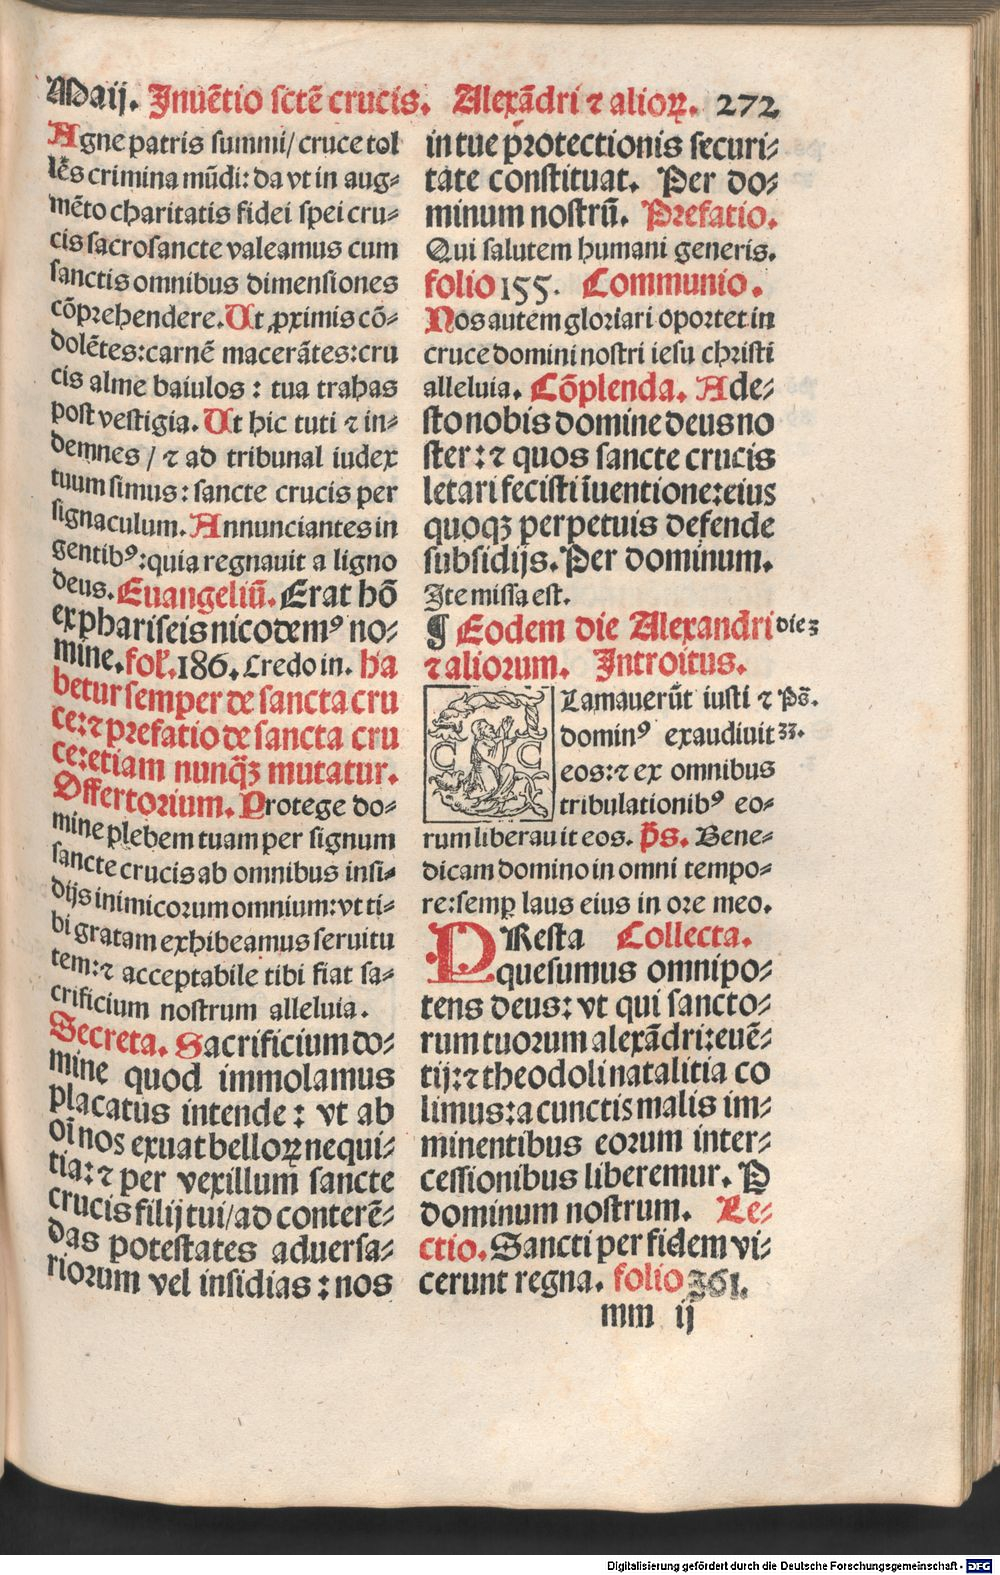 Maij. Inuētio sctē crucis. Alexādri ⁊ alioꝝ. 272
Agne patris summi / cruce tol
lēs crimina mūdi: da vt in aug⸗
mēto charitatis fidei spei cru⸗
cis sacrosancte valeamus cum
sanctis omnibus dimensiones
cōprehendere. Ut ꝓximis cō⸗
dolētes: carnē macerātes: cru
cis alme baiulos : tua trahas
post vestigia. Ut hic tuti ⁊ in⸗
demnes / ⁊ ad tribunal iudex
tuum simus: sancte crucis per
signaculum. Annunciantes in
gentibꝰ: quia regnauit a ligno
deus. Euangeliū. Erat hō
ex phariseis nicodemꝰ no⸗
mine. fol. 186. Credo in. Ha
betur semper de sancta cru
ce: ⁊ prefatio de sancta cru
ce: etiam nunq̄ꝫ mutatur.
Offertorium. Protege do⸗
mine plebem tuam per signum
sancte crucis ab omnibus insi⸗
dijs inimicorum omnium: vt ti⸗
bi gratam exhibeamus seruitu
tem: ⁊ acceptabile tibi fiat sa⸗
crificium nostrum alleluia.
Secreta. Sacrificium do⸗
mine quod immolamus
placatus intende : vt ab
oī nos exuat belloꝝ nequi⸗
tia: ⁊ per vexillum sancte
crucis filij tui / ad conterē⸗
das potestates aduersa⸗
riorum vel insidias : nos
in tue protectionis securi⸗
tate constituat. Per do⸗
minum nostrū. Prefatio.
Qui salutem humani generis.
folio 155. Communio.
Nos autem gloriari oportet in
cruce domini nostri iesu christi
alleluia. Cōplenda. Ade⸗
sto nobis domine deus no
ster: ⁊ quos sancte crucis
letari fecisti īuentione: eius
quoqꝫ perpetuis defende
subsidijs. Per dominum.
Ite missa est.
¶ Eodem die Alexandri die 3
⁊ aliorum. Introitus.
Clamauerūt iusti ⁊ Ps̄.
dominꝰ exaudiuit 33.
eos: ⁊ ex omnibus
tribulationibꝰ eo⸗
rum liberauit eos. p̄s. Bene⸗
dicam domino in omni tempo⸗
re: semꝑ laus eius in ore meo.
PResta Collecta.
quesumus omnipo⸗
tens deus: vt qui sancto⸗
rum tuorum alexādri: euē⸗
tij: ⁊ theodoli natalitia co
limus: a cunctis malis im⸗
minentibus eorum inter⸗
cessionibus liberemur. P
dominum nostrum. Le⸗
ctio. Sancti per fidem vi⸗
cerunt regna. folio 361.
mm ij
Digitalisierung gefördert durch die Deutsche Forschungsgemeinschaft - DFG